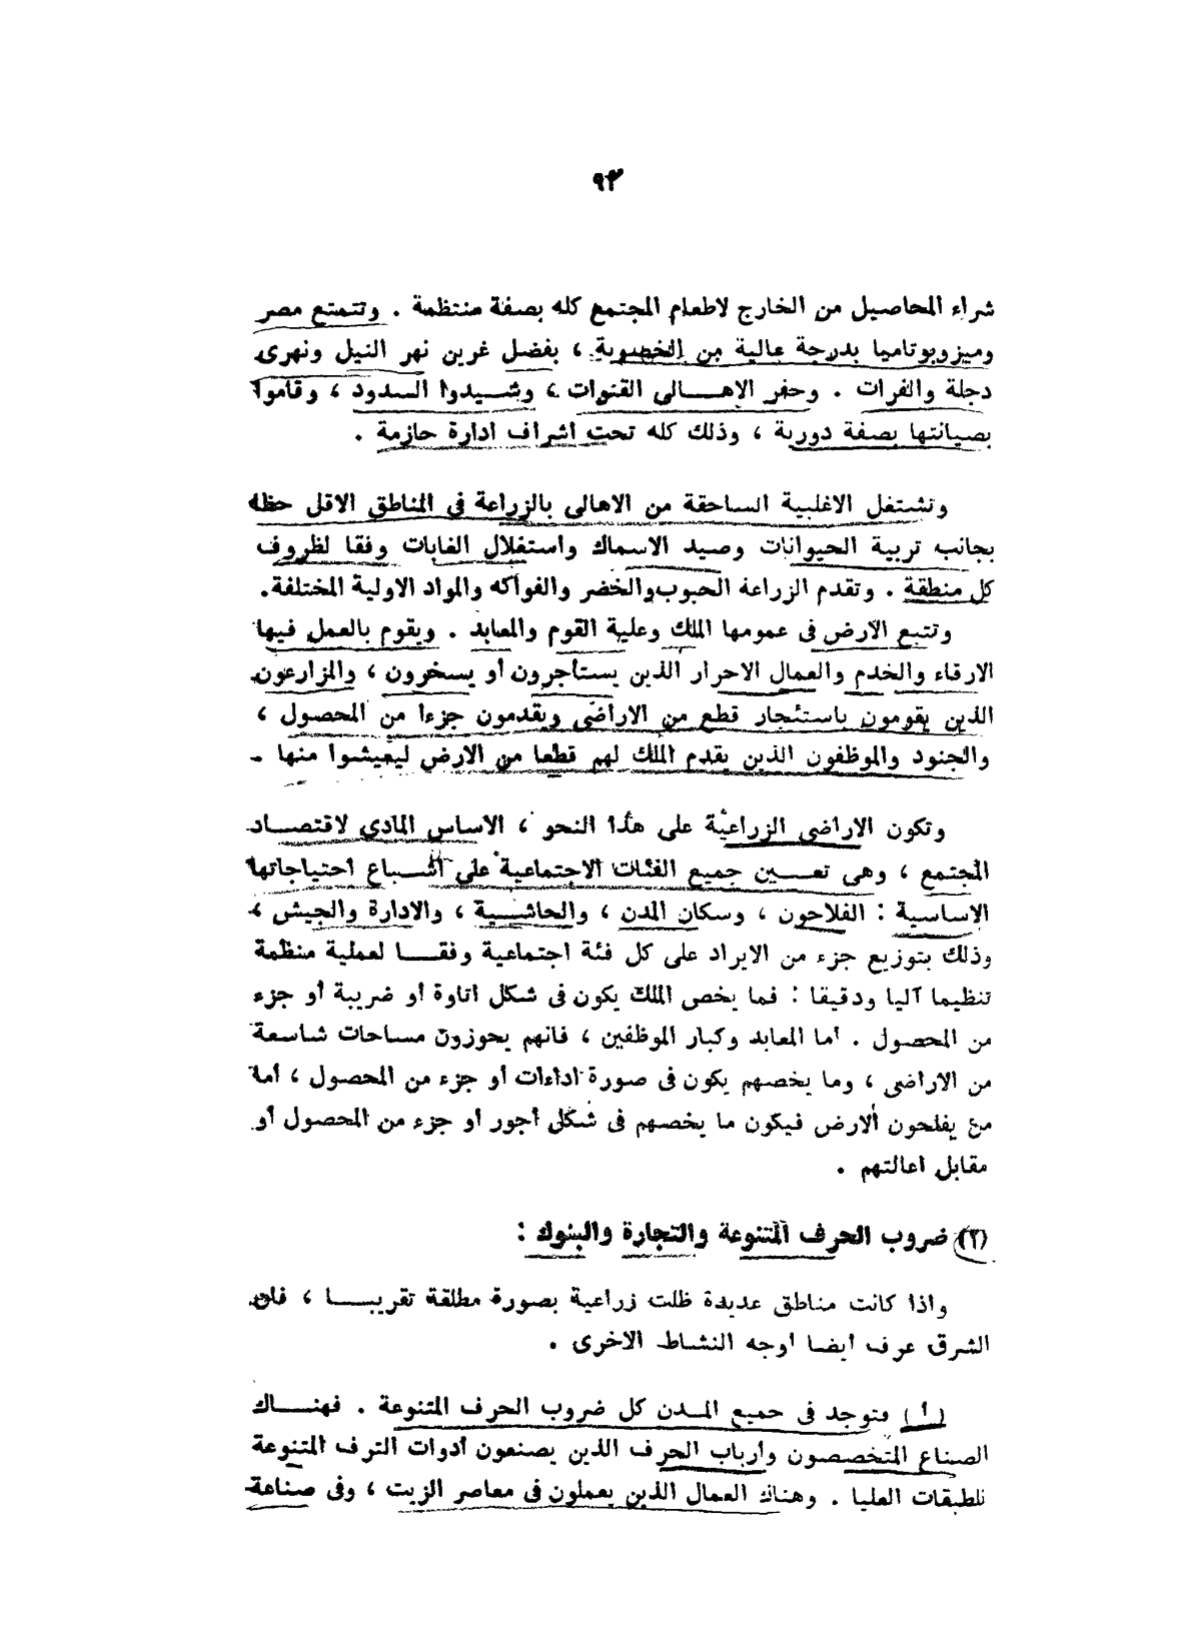 ٩٣
شراء المحاصيل من الخارج لاطعام المجتمع كله بصفة منتظمة . وتتمتع مصر
وميزوبوتاميا بدرجة عالية من الخصوبة ، بفضل غرين نهر النيل ونهرى
دجلة والفرات . وحفر الاهـــالى القنوات ، وشـــيدوا السدود ، وقاموا
بصيانتها بصفة دورية ، وذلك كله تحت اشراف ادارة حازمة .
وتشتغل الاغلبية الساحقة من الاهالى بالزراعة فى المناطق الاقل حظا
بجانب تربية الحيوانات وصيد الاسماك واستغلال الغابات وفقا لظروف
كل منطقة . وتقدم الزراعة الحبوب والخضر والفواكه والمواد الاولية المختلفة .
وتتبع الارض فى عمومها الملك وعلية القوم والمعابد . ويقوم بالعمل فيها
الارقاء والخدم والعمال الاحرار الذين يستأجرون أو يسخرون ، والمزارعون
الذين يقومون باستئجار قطع من الاراضى ويقدمون جزءا من المحصول ،
والجنود والموظفون الذين يقدم الملك لهم قطعا من الارض ليعيشوا منها .
وتكون الاراضى الزراعية على هذا النحو ، الاساس المادى لاقتصـــاد
المجتمع ، وهى تعـــين جميع الفئات الاجتماعية على اشـــباع احتياجاتها
الاساسية : الفلاحون ، وسكان المدن ، والحاشـــية ، والادارة والجيش ،
وذلك بتوزيع جزء من الايراد على كل فئة اجتماعية وفقـــا لعملية منظمة
تنظيما آليا ودقيقا : فما يخص الملك يكون فى شكل اتاوة أو ضريبة أو جزء
من المحصول . أما المعابد وكبار الموظفين ، فانهم يحوزون مساحات شاسعة
من الاراضى ، وما يخصهم يكون فى صورة اداءات أو جزء من المحصول ، أما
من يفلحون الارض فيكون ما يخصهم فى شكل أجور أو جزء من المحصول أو
مقابل اعالتهم .
(٢) ضروب الحرف المتنوعة والتجارة والبنوك :
واذا كانت مناطق عديدة ظلت زراعية بصورة مطلقة تقريبـــا ، فان
الشرق عرف ايضا أوجه النشاط الاخرى .
( أ ) وتوجد فى جميع المـــدن كل ضروب الحرف المتنوعة . فهنـــاك
الصناع المتخصصون وأرباب الحرف الذين يصنعون أدوات الترف المتنوعة
للطبقات العليا . وهناك العمال الذين يعملون فى معاصر الزيت ، وفى صناعة